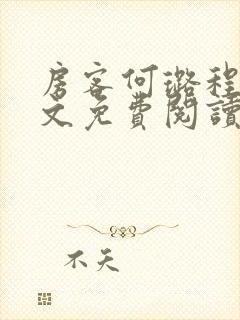 房客何璐程
文免費閱讀
不天